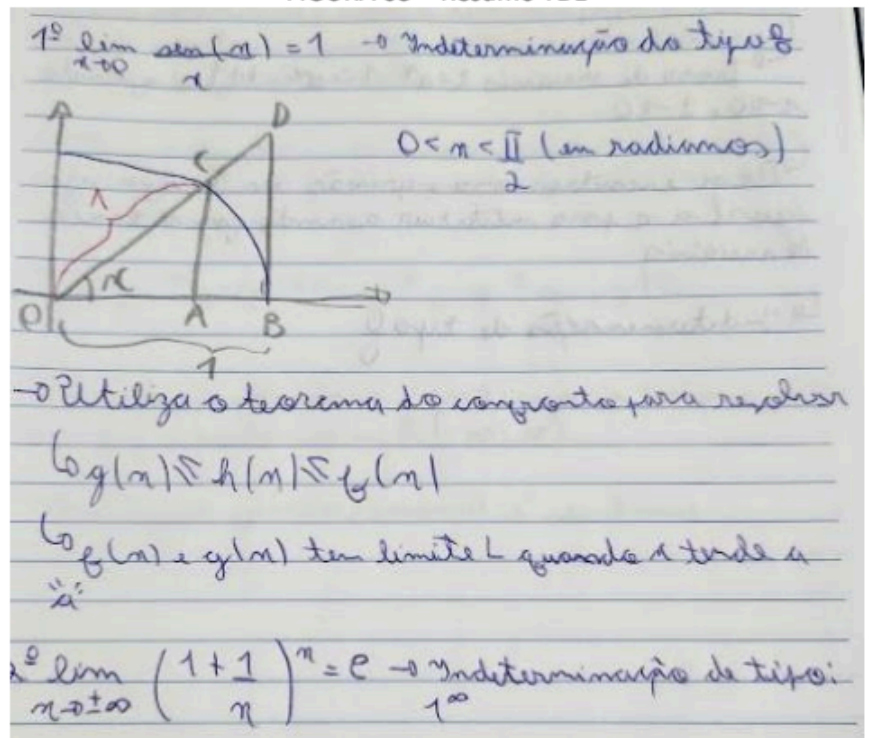 1º lim sen(x) = 1 → Indeterminação do tipo 0/0
x→0 x
D
C
0 < x < π (em radianos)
2
1
x
O A B
1
→ Utiliza o teorema do confronto para resolver
↳ g(x) ≤ h(x) ≤ f(x)
↳ f(x) e g(x) tem limite L quando x tende a
"a"
2º lim (1 + 1)^x = e → Indeterminação de tipo:
x→±∞ x 1^∞